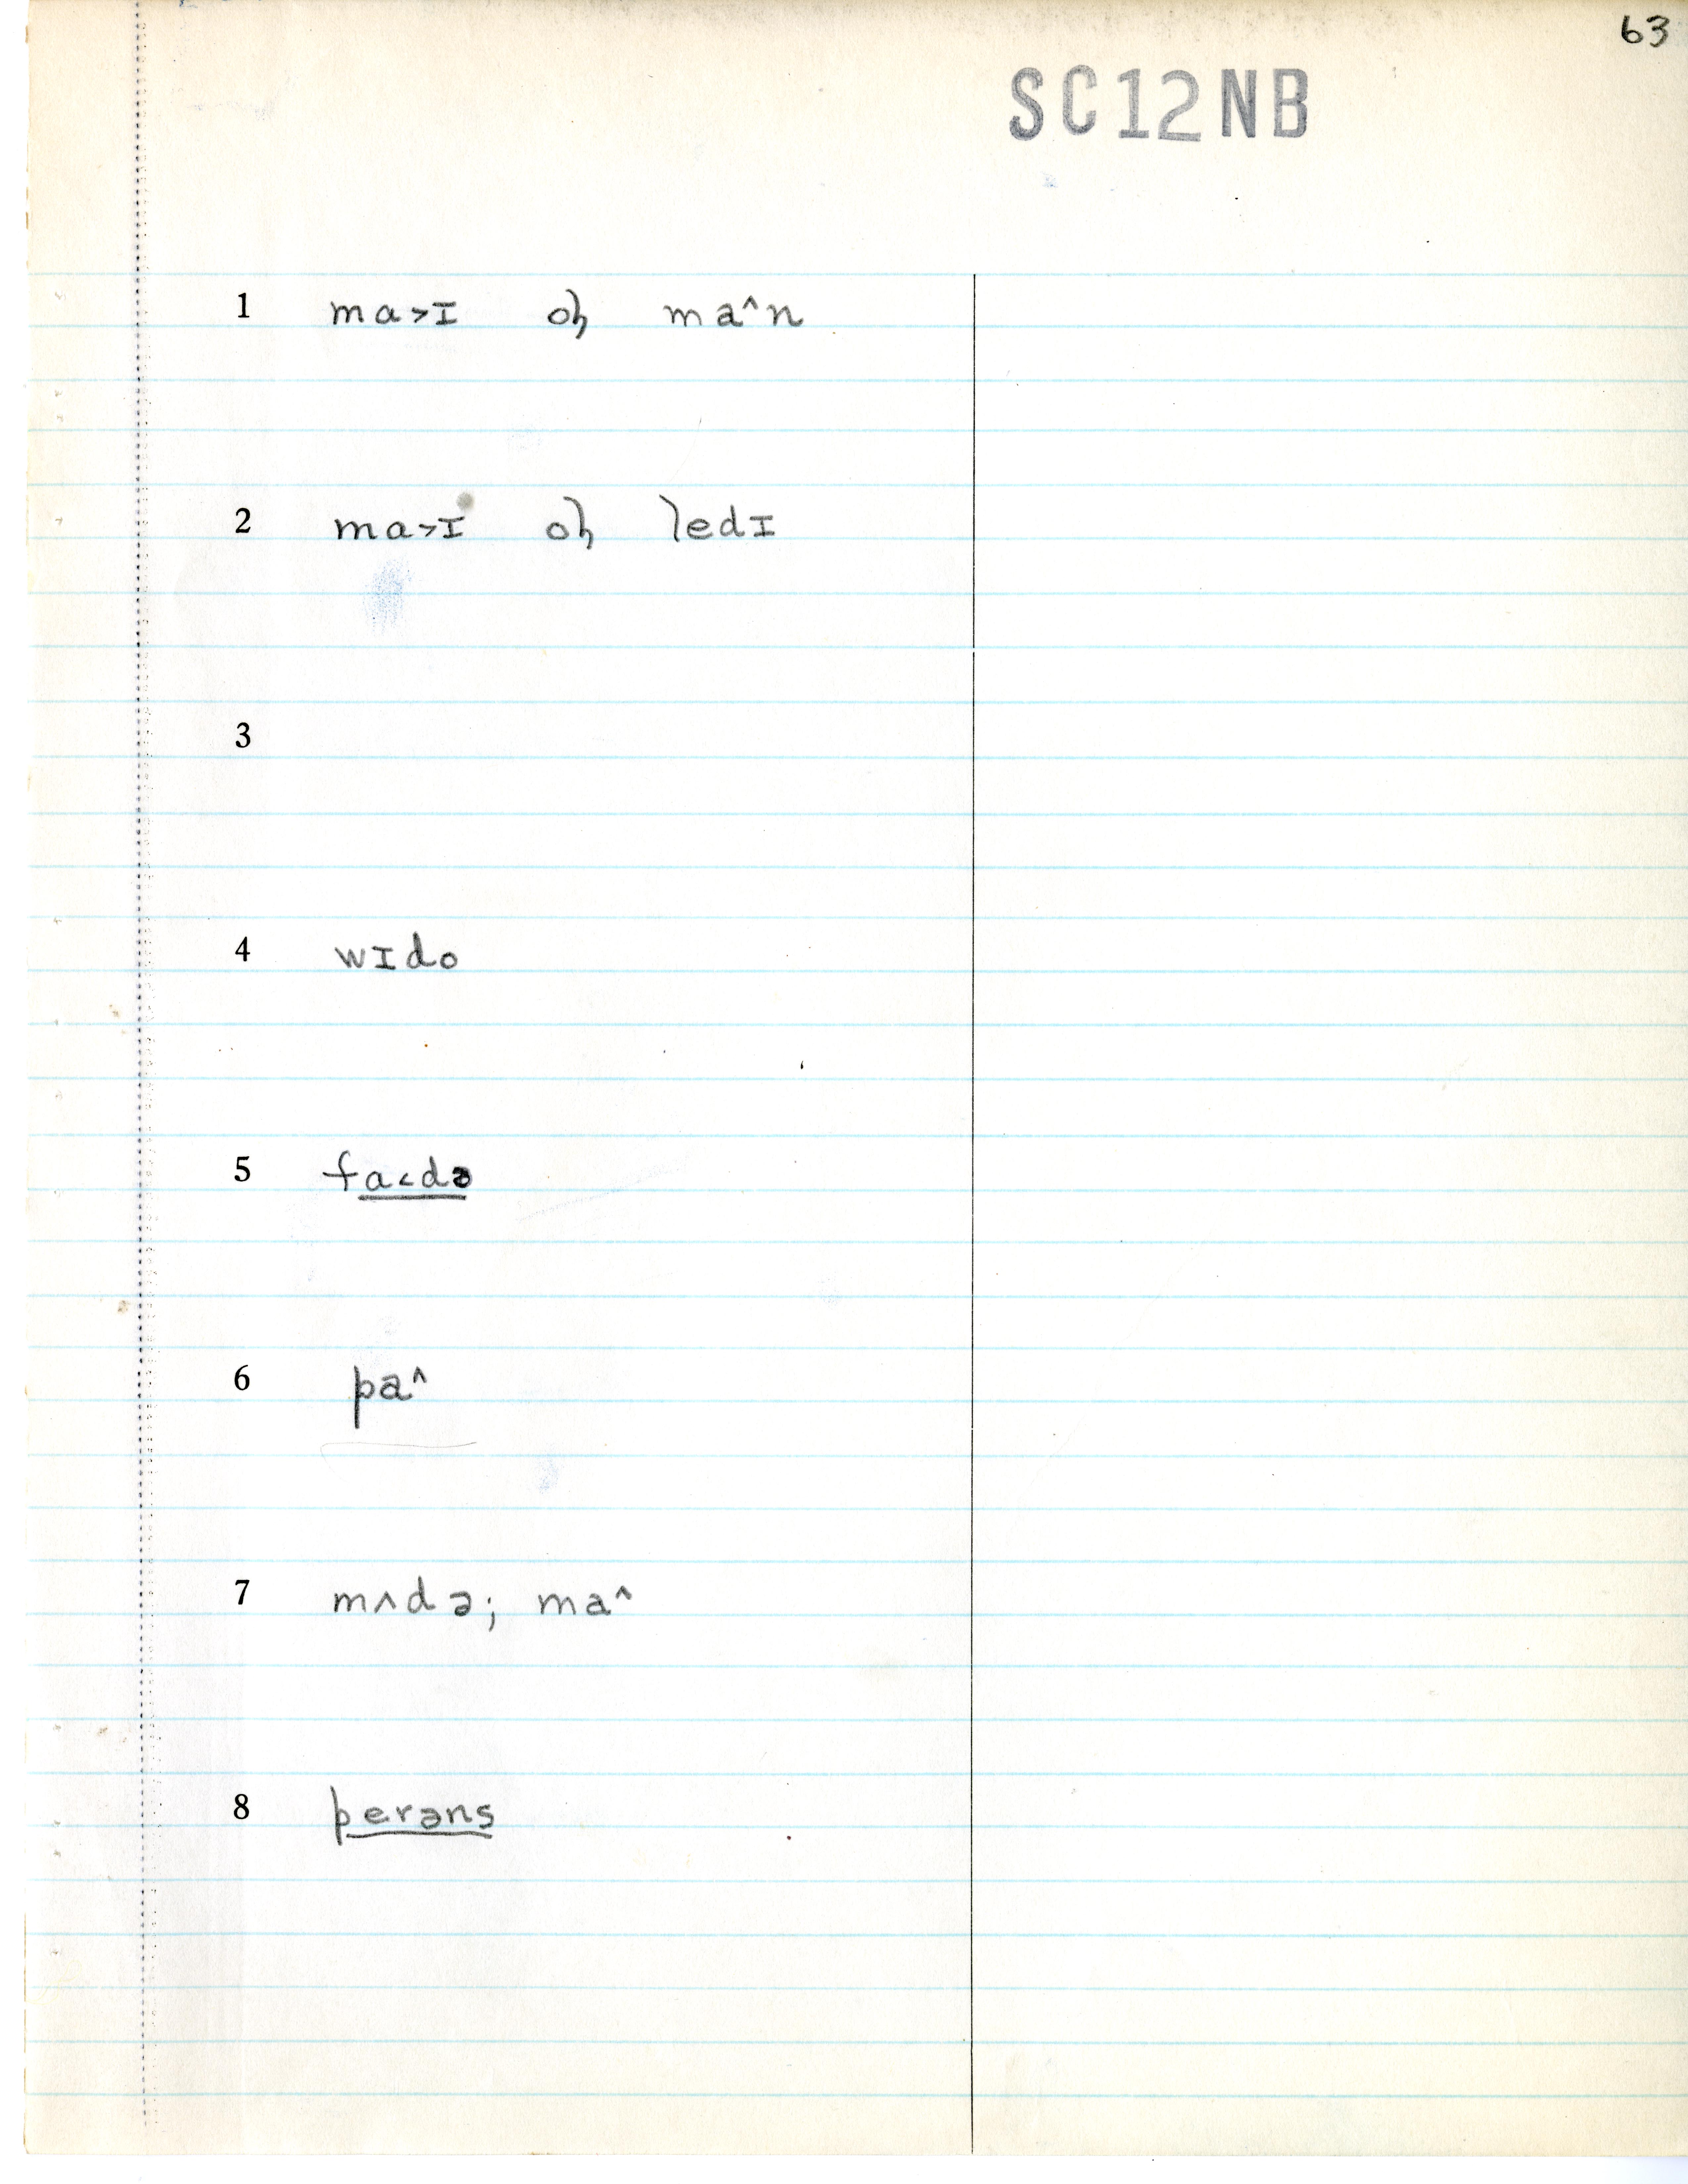 63
SC12NB
1 ma˃ɪ oɦ ma^n
2 ma˃ɪ oɦ ledɪ
3
4 wɪdo
5 fa˂də
6 pa^
7 mʌdə; ma^
8 perəns